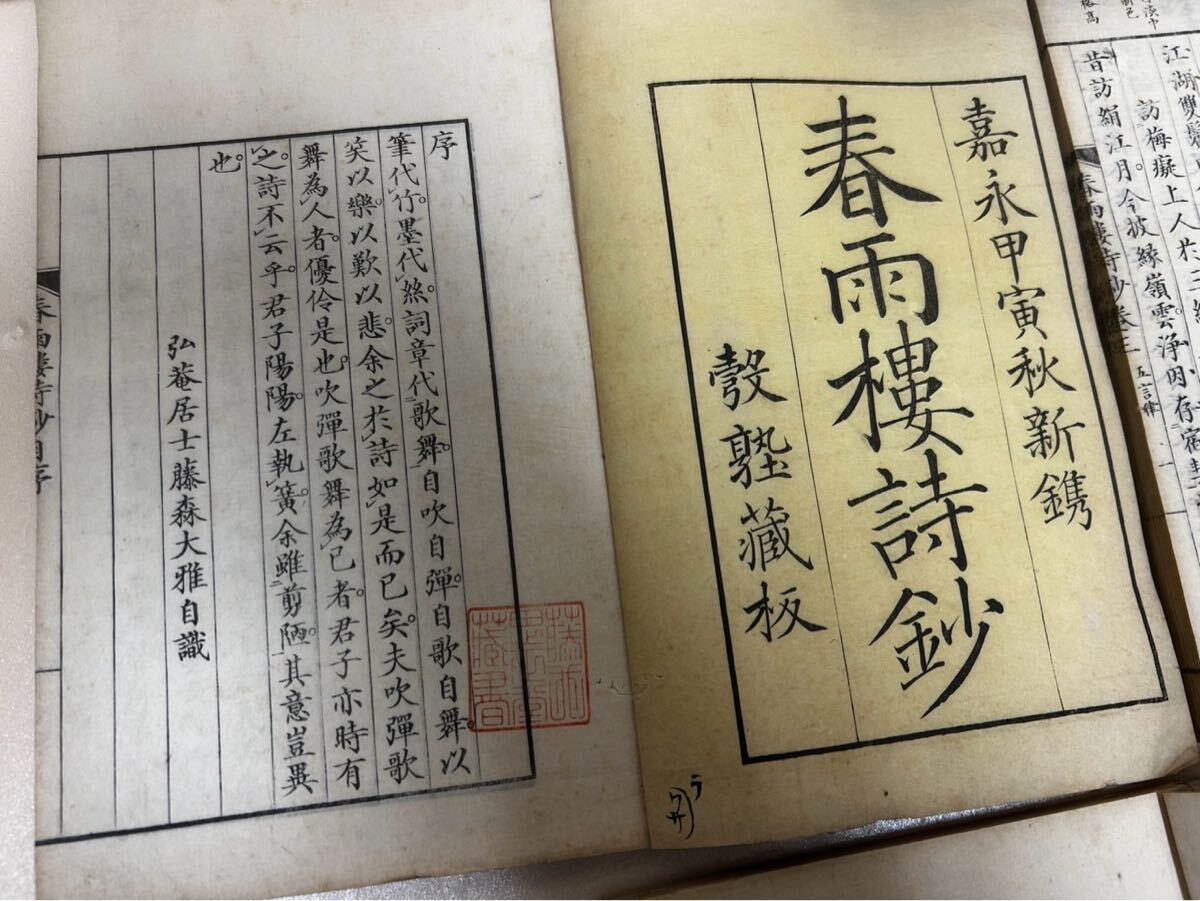 嘉永甲寅秋新鐫
春雨樓詩鈔
彀塾藏板
序
筆代竹。墨代絲。詞章代歌舞。自吹自彈。自歌自舞。以
笑以樂。以歎以悲。余之於詩如是而已矣。夫吹彈歌
舞為人者。優伶是也。吹彈歌舞為己者。君子亦時有
之。詩不云乎。君子陽陽。左執簧。余雖剪陋。其意豈異
也。
弘菴居士藤森大雅自識
春雨樓詩鈔自序
江湖雙鬢
訪梅癡上人於
昔訪絹江月。今披緣嶺雲。淨因存宿
春雨樓詩鈔卷
五言律
一
藏書